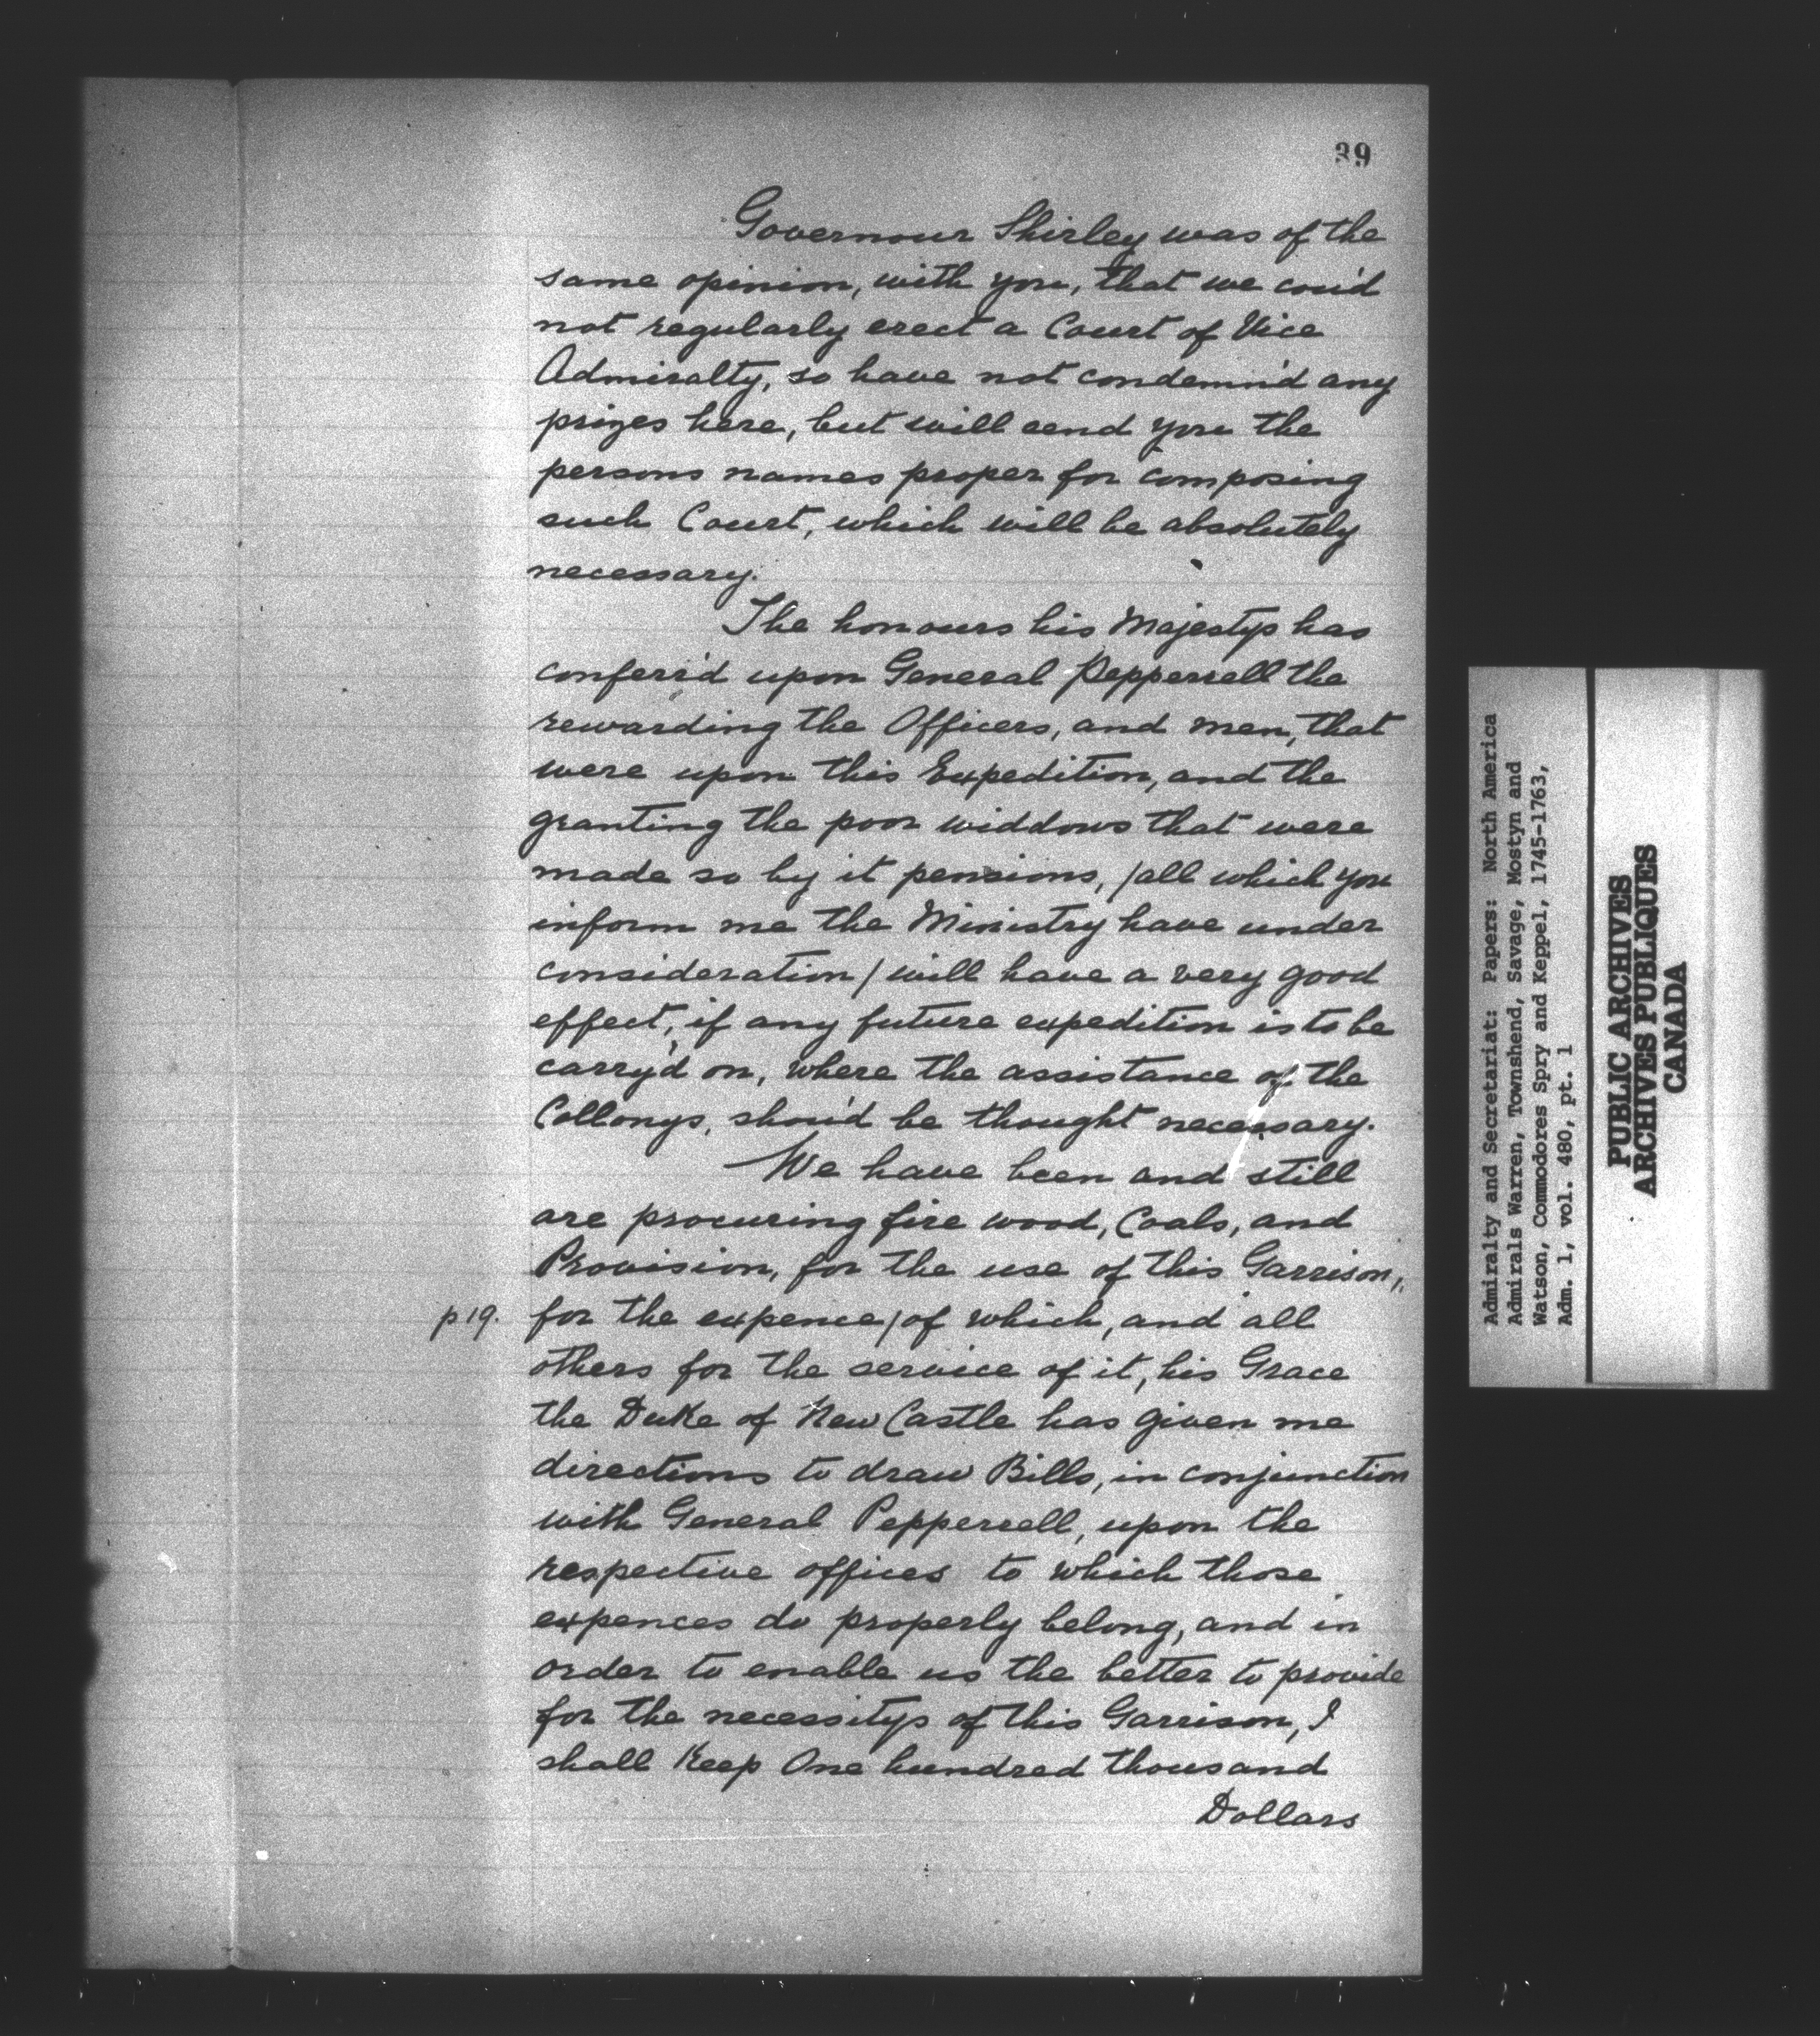 39
Governour Shirley was of the
same opinion, with you, that we cou'd
not regularly erect a Court of Vice
Admiralty, so have not condemn'd any
prizes here, but will send you the
persons names proper for composing
such Court, which will be absolutely
necessary.
The honours his Majestys has
conferr'd upon General Pepperrell the
rewarding the Officers, and men, that
were upon this Expedition, and the
granting the poor widdows that were
made so by it pensions, /all which you
inform me the Ministry have under
consideration/ will have a very good
effect, if any future expedition is to be
carry'd on, where the assistance of the
Collonys, shou'd be thought necessary.
We have been and still
are procuring fire wood, Coals, and
Provision, for the use of this Garrison,
p 19. for the expence/of which, and all
others for the service of it, his Grace
the Duke of New Castle has given me
directions to draw Bills, in conjunction
with General Pepperrell, upon the
respective offices to which those
expences do properly belong, and in
order to enable us the better to provide
for the necessitys of this Garrison, I
shall Keep One hundred thousand
Dollars
Admiralty and Secretariat: Papers: North America
Admirals Warren, Townshend, Savage, Mostyn and
Watson, Commodores Spry and Keppel, 1745-1763,
Adm. 1, vol. 480, pt. 1
PUBLIC ARCHIVES
ARCHIVES PUBLIQUES
CANADA